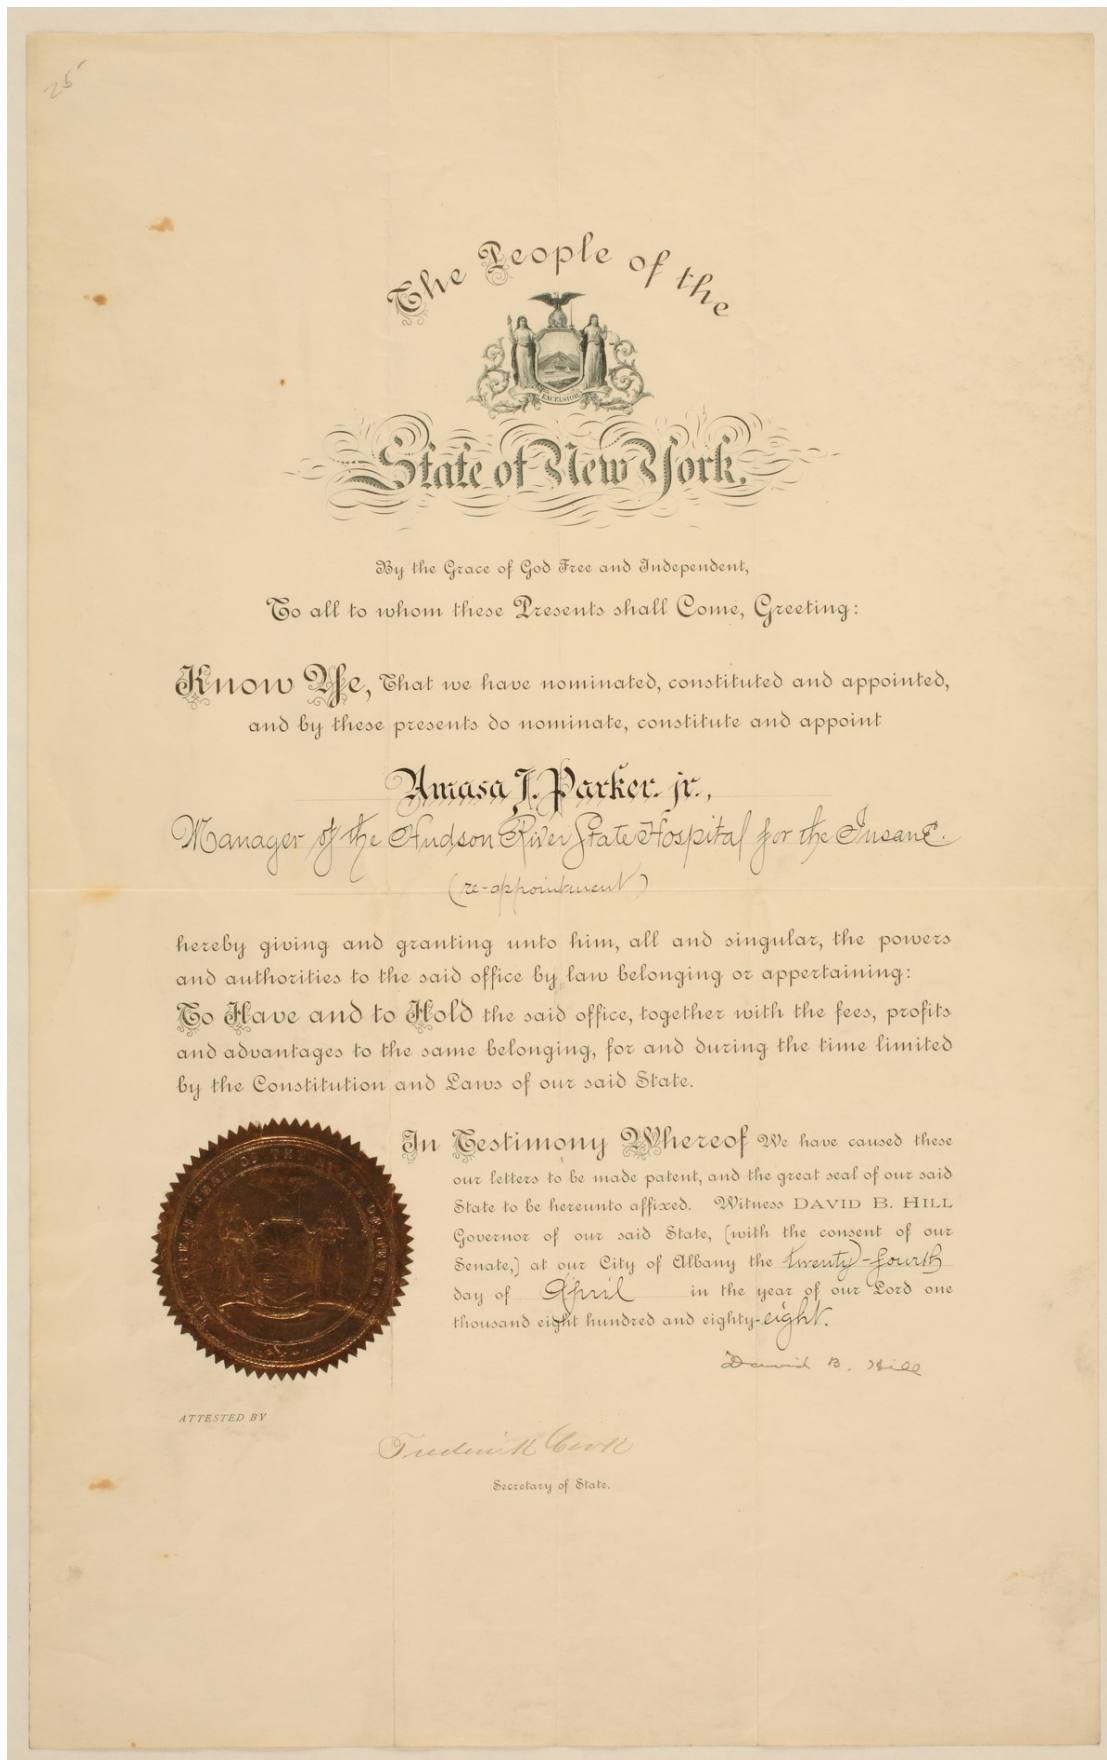 25
The People of the
EXCELSIOR
State of New York.
By the Grace of God Free and Independent,
To all to whom these Presents shall Come, Greeting:
Know Ye, That we have nominated, constituted and appointed,
and by these presents do nominate, constitute and appoint
Amasa J. Parker. jr.,
Manager of the Hudson River State Hospital for the Insane.
(re-appointment)
hereby giving and granting unto him, all and singular, the powers
and authorities to the said office by law belonging or appertaining:
To Have and to Hold the said office, together with the fees, profits
and advantages to the same belonging, for and during the time limited
by the Constitution and Laws of our said State.
In Testimony Whereof We have caused these
our letters to be made patent, and the great seal of our said
State to be hereunto affixed. Witness DAVID B. HILL
Governor of our said State, (with the consent of our
Senate,) at our City of Albany the twenty-fourth
day of April in the year of our Lord one
thousand eight hundred and eighty-eight.
THE GREAT SEAL OF THE STATE OF NEW YORK
David B. Hill
ATTESTED BY
Frederick Cook
Secretary of State.